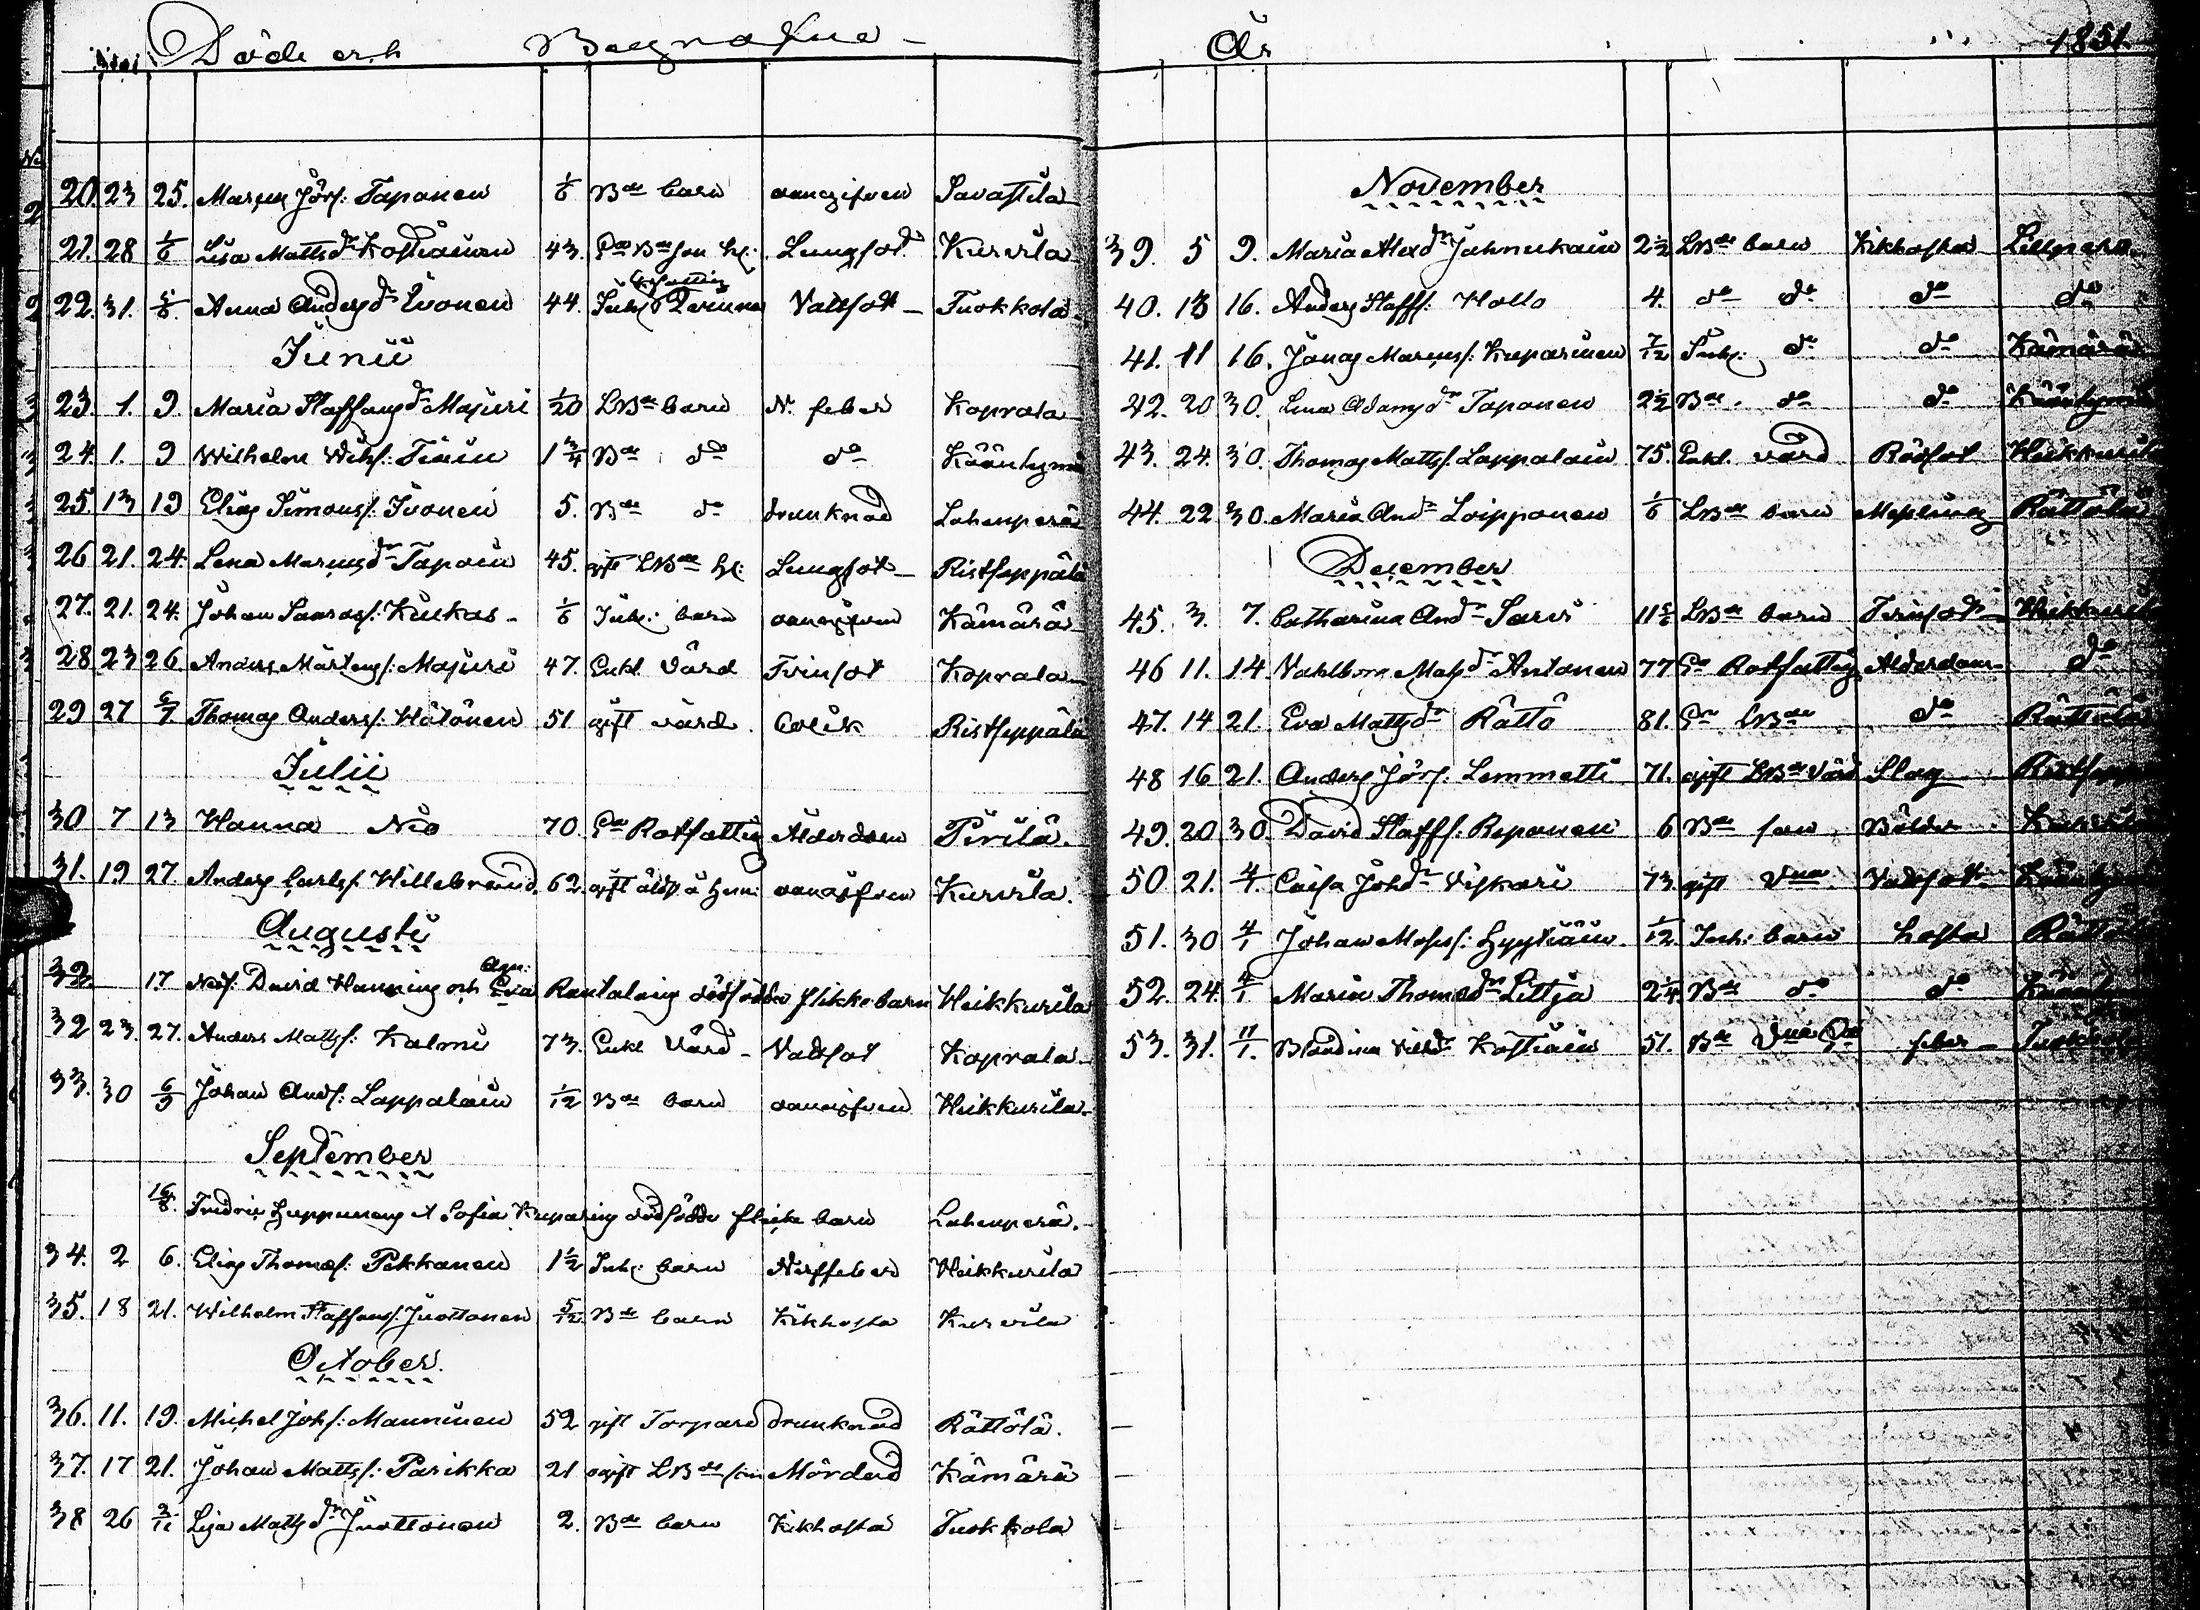 Döde och Begrafne
År 1851.
20 23 25. Marcus Jörs: Taponen 1/6 Bde barn oangifven Savastila
21. 28 1/6 Lisa Matts dr Kostiainen 43. Lungsot Kurvila
22. 31. Anna Anders dr Ivonen 44. Vattsot Tuokkola
Junii
23. 1. 9 Maria Staffans dr Majuri 1/20 LBde barn N. feber Koprala
24. 1. 9 Wilhelm Wilhs: Tiäin 1 3/4 Bde do do Kääntymä
25. 13 19 Elias Simons: Ivonen 5. Bde do drunknad Lahenperä
26 21. 24. Lena Marcus dr Tapoin 45. gift LBde Lungsot Ristseppälä
27. 21. 24. Johan 1/6 Inh: barn oangifven Kämärä
28 23 26 Anders Mårtens: Majuri 47. Enkl Värd Tvinsot Koprala
29 27 6/7 Thomas Anders: Hätönen 51 gift värd. Colik Ristseppälä
Julii
30 7 13 Hanna 70. Ea Rotfattig Ålderdom Pirilä.
31. 19 27. Anders Carls: Willebrand. 62. gift oangifven Kurvila.
Augusti
32. 17 David Hanning och Eva Rantalains dödfödde flikkebarn Heikkurila
32 23. 27. Anders Matts: Kalmi 73. Enkl Värd Vattsot Koprala
33. 30 6/9 Johan Ands: Lappalain 1/12 Bde barn oangifven Heikkurila
September
Fredric Huppunens & Sofia Kuparins dödfödde flicke barn Lahenperä.
34. 2 6. Elias Thomæs: Pekkanen 1 1/2 Inh: barn Nerffeber Heikkurila
35. 18 21. Wilhelm Staffans: Juottonen 5/12 Bde barn Kikhosta Kurvila
October.
36. 11. 19. Michel Johs: Manninen 52 gift Torpare Drunknad Rättölä.
37. 17 21. Johan Matts: Parikka 21 ogift LBde son Mördad Kämärä
38 26 2/11 Lisa Matts dr Juottonen 2. Bde barn Kikhosta Tuokkola
November
39. 5 9. Maria Alex dr Jähnukain 2 1/2 LBde barn Kikhosta
40. 13 16. Anders Staffs: Hollo 4. do do do do
41. 11 16. Jonas Marcus: Kuparinen 7/12 Inh: do do Kämärä
42. 20 30. Lena Adams dr Taponen 2 1/2 Bde do do Kääntymä
43. 24. 30. Thomas Matts: Lappalain 75. Enkl. värd Rödsot Heikkurila
44. 22 30. Maria And dr Loipponen 1/6 LBde barn Messling Rättölä
December
45. 3. 7. Catharina And dr Sarvi 11 LBde barn Tvinsot Heikkurila
46 11. 14 Vahlborg Mats dr Antonen 77 Ea Rotfattig Alderdom do
47. 14 21. Eva Matts dr Rättö 81. Ea LBde do Rättölä
48 16 21. Anders Jörs: Lemmetti 71. gift LBde Värd Slag
49. 20 30. David Staffs: Reponen 6 Bde son Bölder
50 21. 4/1. Caisa Joh dr Viskari 73. gift Vna Vattsot
51. 30 4/1 Johan Moses: Hyytiäin. 1/12. Inh: barn hosta
52. 24. 4/1 Maria Thoms dr Littja 2 1/4 Bde do do
53. 31. 11/1. Blandina Vilh dr Kostiain 51. Bde feber